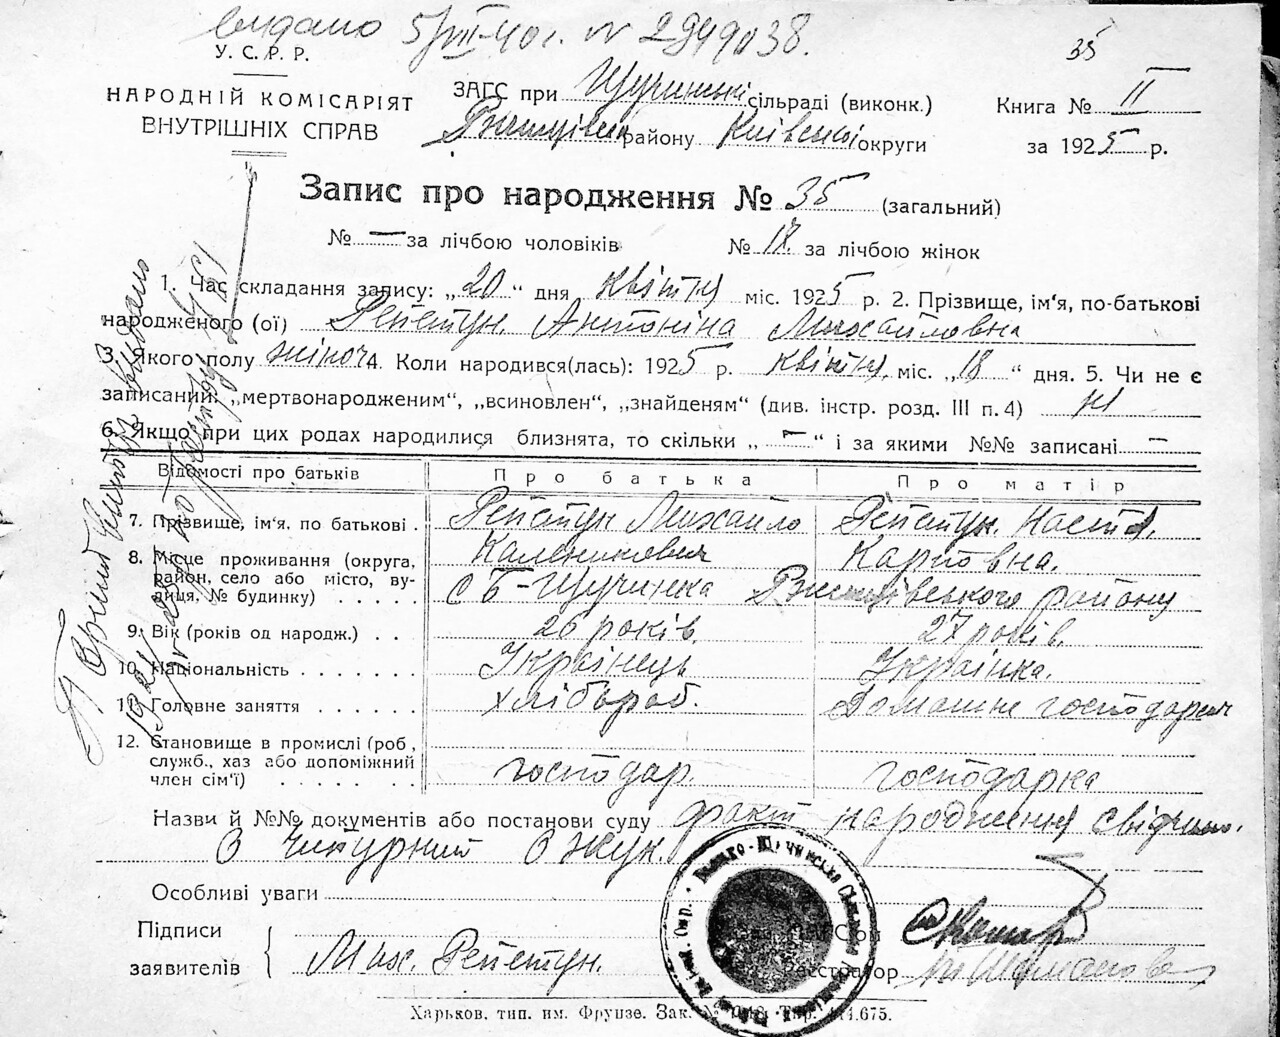 видано 5/VIII-40 г. № 2949038.
35
У. С. Р. Р.
НАРОДНІЙ КОМІСАРІЯТ
ВНУТРІШНІХ СПРАВ
ЗАГС при Щучинській сільраді (виконк.)
району Київської округи
Книга № II
за 1925 р.
Запис про народження № 35 (загальний)
№ — за лічбою чоловіків № 17. за лічбою жінок
1. Час складання запису: „20“ дня квітня міс. 1925 р. 2. Прізвище, ім'я, по-батькові
народженого (ої) Репетун Антоніна Михайловна
3. Якого полу жіноч. 4. Коли народився(лась): 1925 р. квітня міс. „18“ дня. 5. Чи не є
записаний: „мертвонародженим“, „всиновлен“, „знайденям“ (див. інстр. розд. III п. 4) ні
6. Якщо при цих родах народилися близнята, то скільки „—“ і за якими №№ записані —
Відомості про батьків Про батька Про матір
7. Прізвище, ім'я, по батькові . Репетун Михайло Каленикович Репетун Настя. Карповна.
8. Місце проживання (округа,
район, село або місто, ву-
лиця, № будинку) . . . . . с Б-Щучинка Ржищівського району
9. Вік (років од народж.) . . 26 років. 27 років.
10. Національність . . . . . . . Українець Українка.
11. Головне заняття . . . . . . хлібороб. Домашне господарст
12. Становище в промислі (роб.,
служб., хаз або допоміжний
член сім'ї) . . . . . . господар. господарка
Назви й №№ документів або постанови суду факт народження свідчили.
Чипурний Жук.
Особливі уваги
Підписи
заявителів
Мих. Репетун.
Реєстратор
Харьков, тип. им. Фрунзе. Зак. №